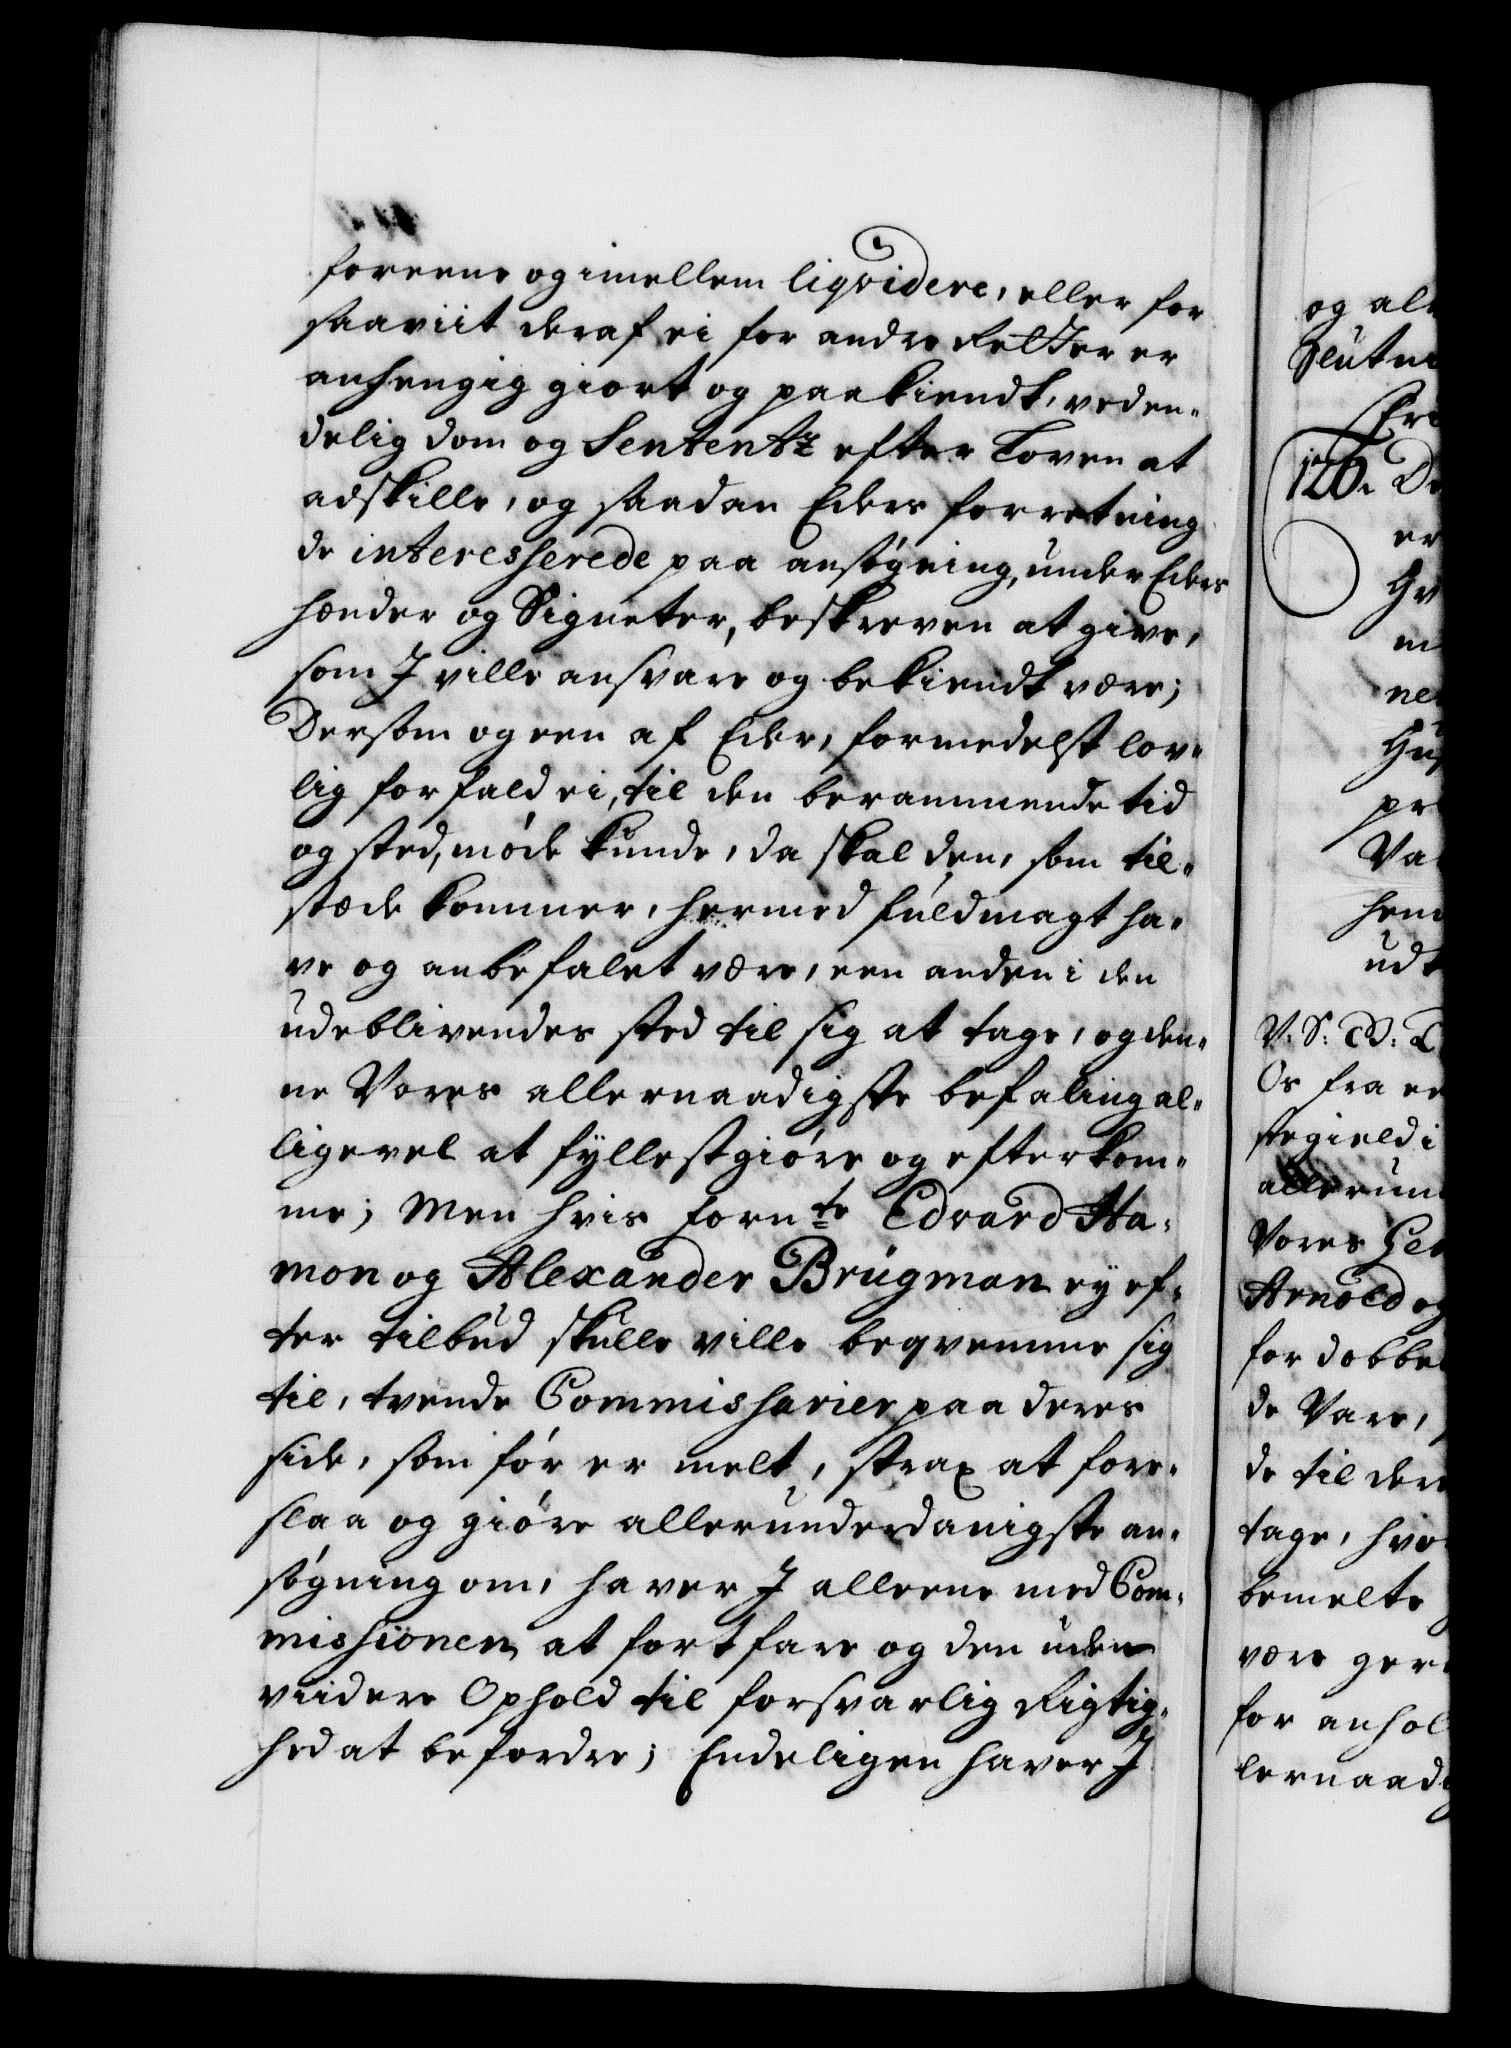 foreene og imellem liqvidere, eller for
saaviit deraf ei for andre Retter er
anhengig giort og paakiendt, ved en-
delig dom og Sententz efter Loven at
adskille, og saadan Eders forretning
de interesserede paa ansøgning, under Eders
hænder og Signeter, beskreven at give,
som I ville ansvare og bekiendt være;
Dersom og een af Eder, formedelst lov-
lig forfald ei, til den berammende tid
og sted, møde kunde, da skal den, som til-
stæde kommer, hermed fuldmagt ha-
ve og anbefalet være, een anden i den
udeblivendes sted til sig at tage, og den-
ne Vores allernaadigste befaling al-
ligevel at fyllestgiøre og efterkom-
me; Men hvis fornte Edvard Ha-
mon og Alexander Brugman ey ef-
ter tilbud skulle ville beqvemme sig
til, tvende Commissarier paa deres
side, som før er melt, strax at fore-
slaa og giøre allerunderdanigste an-
søgning om, haver I alleene med Com-
missionen at fortfare og den uden
viidere Ophold til forsvarlig Rigtig-
hed at befordre; Endeligen haver I
og al
Slutni
Fri
126. D
er
Hv
m
ne
Hu
pr
Va
hen
udt
V. S. G. T
Os fra e
stegield i
allerun
Vores
Arnold og
for dobbe
de Vare,
de til der
tage, hvo
bemelte
være ger
for anhol
lernaad